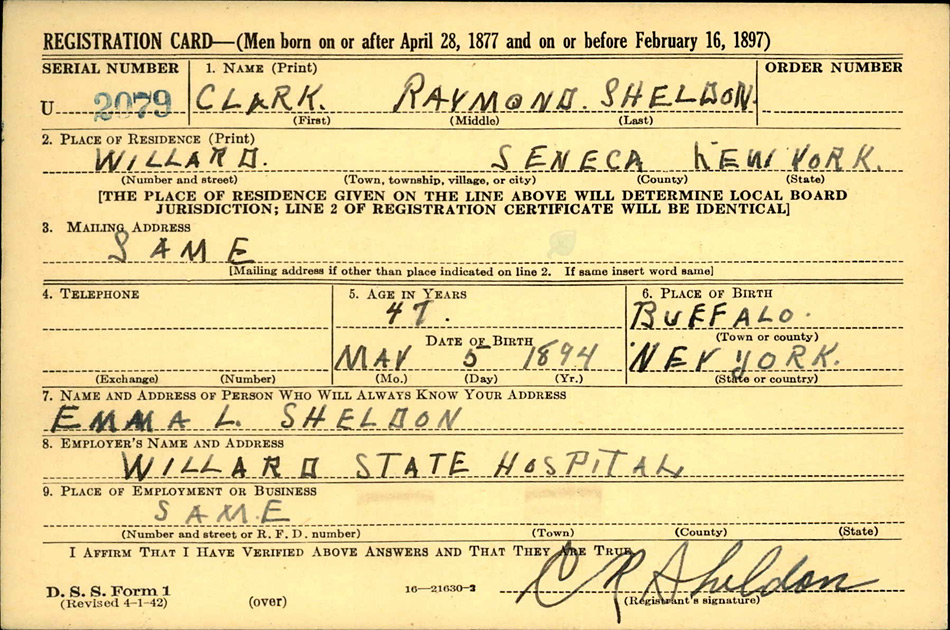 REGISTRATION CARD—(Men born on or after April 28, 1877 and on or before February 16, 1897)
SERIAL NUMBER 1. NAME (Print) ORDER NUMBER
U 2079 CLARK. RAYMOND. SHELDON.
(First) (Middle) (Last)
2. PLACE OF RESIDENCE (Print)
WILLARD. SENECA NEW YORK.
(Number and street) (Town, township, village, or city) (County) (State)
[THE PLACE OF RESIDENCE GIVEN ON THE LINE ABOVE WILL DETERMINE LOCAL BOARD
JURISDICTION; LINE 2 OF REGISTRATION CERTIFICATE WILL BE IDENTICAL]
3. MAILING ADDRESS
SAME
[Mailing address if other than place indicated on line 2. If same insert word same]
4. TELEPHONE 5. AGE IN YEARS 6. PLACE OF BIRTH
47. BUFFALO.
DATE OF BIRTH (Town or county)
MAY 5 1894 NEW YORK.
(Exchange) (Number) (Mo.) (Day) (Yr.) (State or country)
7. NAME AND ADDRESS OF PERSON WHO WILL ALWAYS KNOW YOUR ADDRESS
EMMA L. SHELDON
8. EMPLOYER'S NAME AND ADDRESS
WILLARD STATE HOSPITAL
9. PLACE OF EMPLOYMENT OR BUSINESS
SAME
(Number and street or R. F. D. number) (Town) (County) (State)
I AFFIRM THAT I HAVE VERIFIED ABOVE ANSWERS AND THAT THEY ARE TRUE.
C R Sheldon
D. S. S. Form 1 16—21630-2
(Revised 4-1-42) (over) (Registrant's signature)